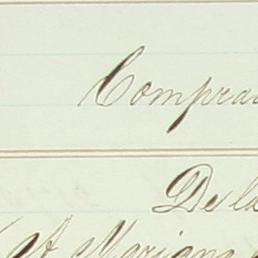 Compra
De la
A Mariano